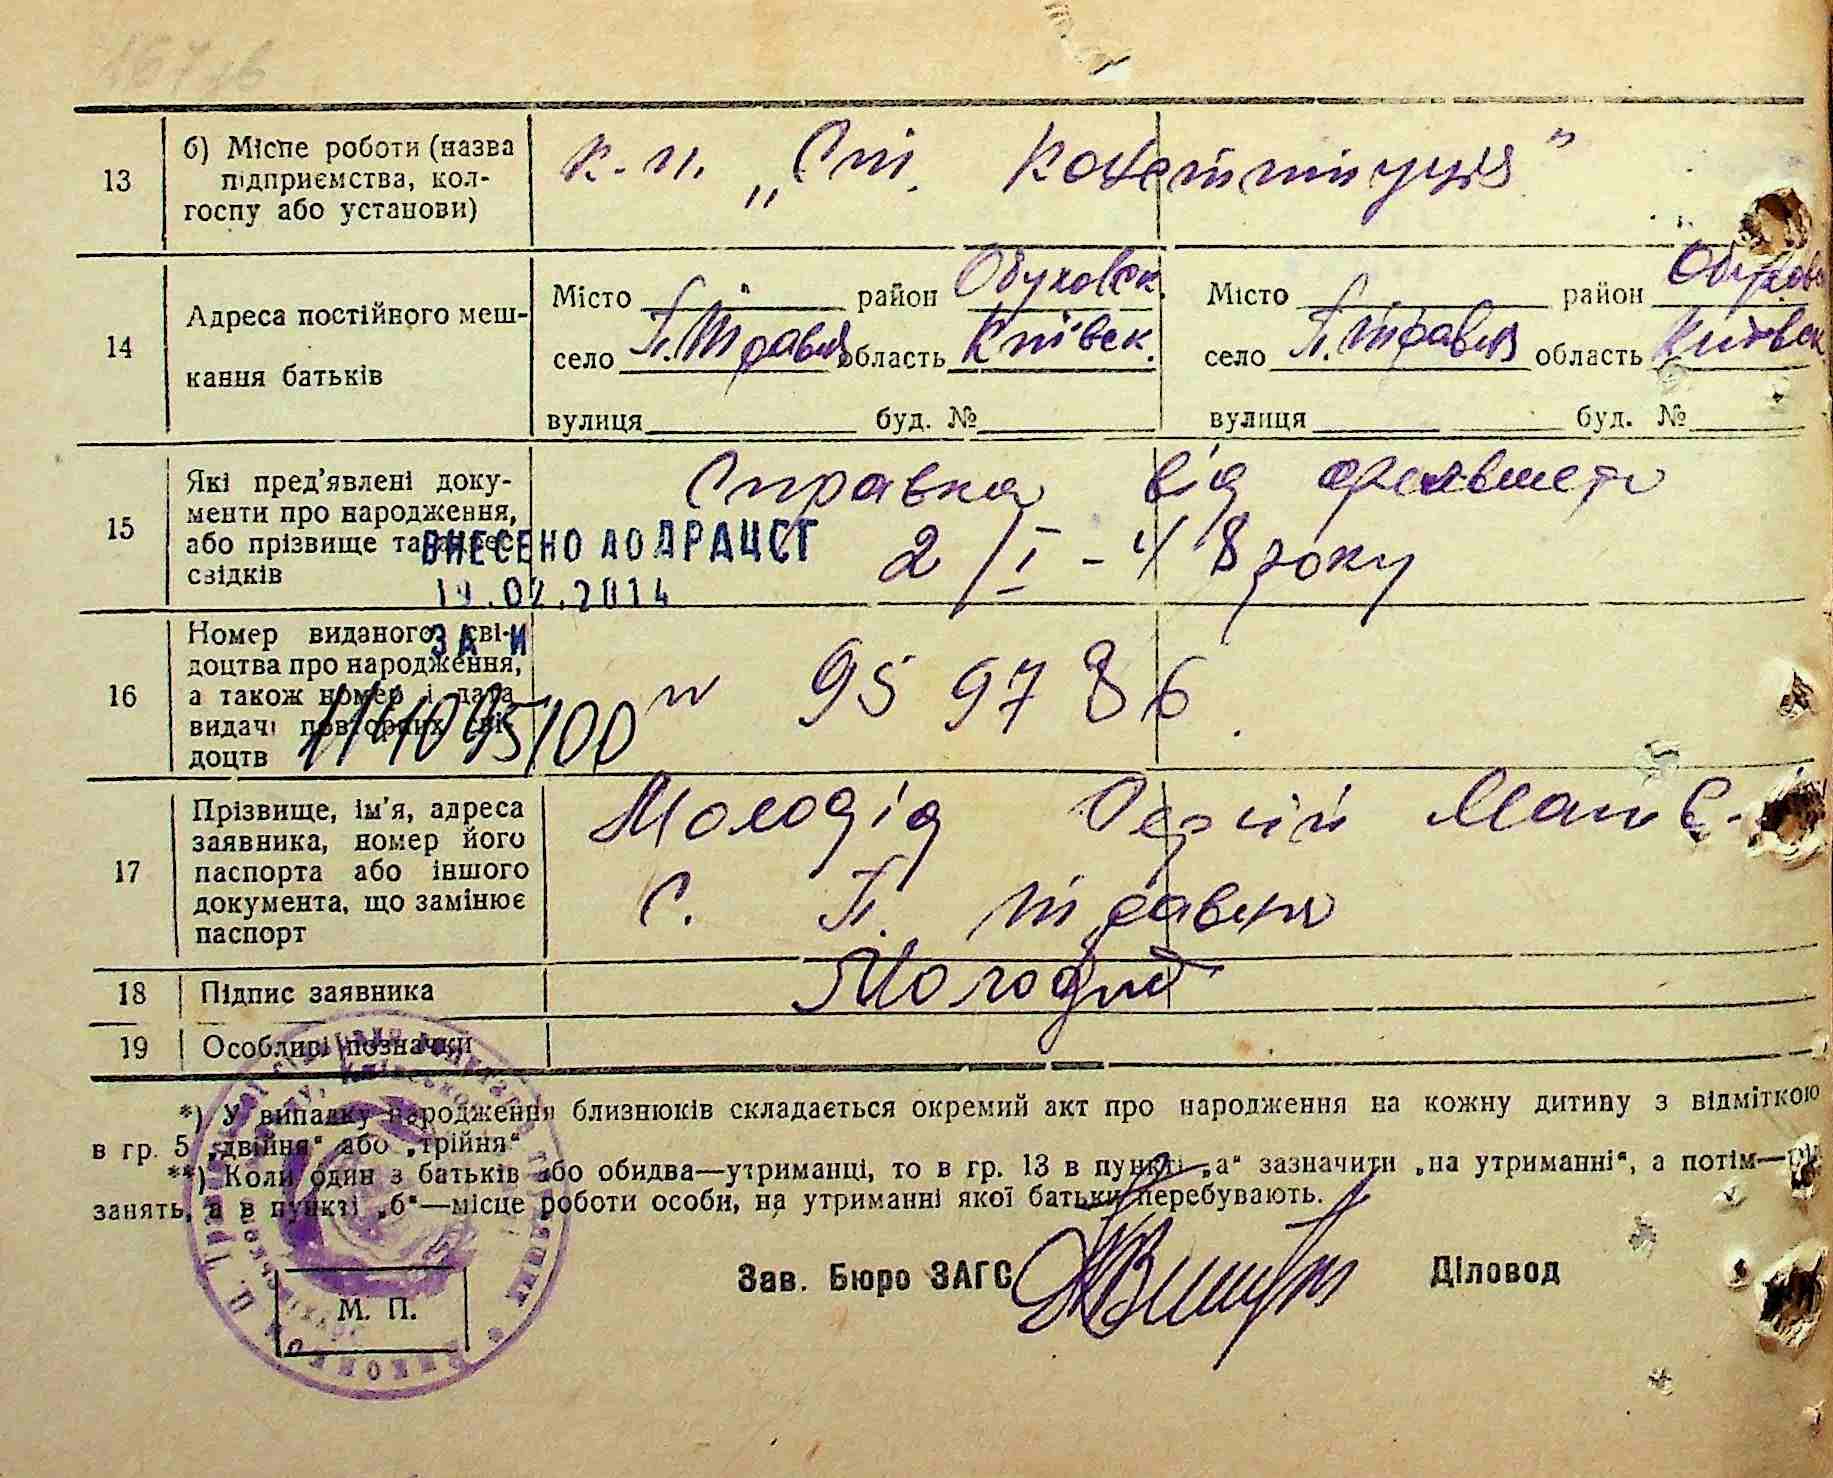 13
б) Місце роботи (назва
підприємства, кол-
госпу або установи)
к. п. „Ст. Конституція"
14
Адреса постійного меш-
кання батьків
Місто район Обуховськ.
село П. Травня область Київськ.
вулиця буд. №
Місто район Обухов
село П. Травня область Київськ
вулиця буд. №
15
Які пред'явлені доку-
менти про народження,
або прізвище та адрес
свідків
Справка від
2/I-48 року
ВНЕСЕНО ДО ДРАЦСГ
.02.2014
ЗА №
16
Номер виданого сві-
доцтва про народження,
а також номер і дата
видачі повторних сві-
доцтв
№ 959786.
17
Прізвище, ім'я, адреса
заявника, номер його
паспорта або іншого
документа, що замінює
паспорт
Молодід Сергій Матв.
с. П. травня
18
Підпис заявника
Молодид
19
Особливі позначки
*) У випадку народження близнюків складається окремий акт про народження на кожну дитину з відміткою
в гр. 5 „двійня" або „трійня"
**) Коли один з батьків або обидва—утриманці, то в гр. 13 в пункті „а" зазначити „на утриманні", а потім—
занять, а в пункті „б"—місце роботи особи, на утриманні якої батьки перебувають.
Зав. Бюро ЗАГС Діловод
М. П.